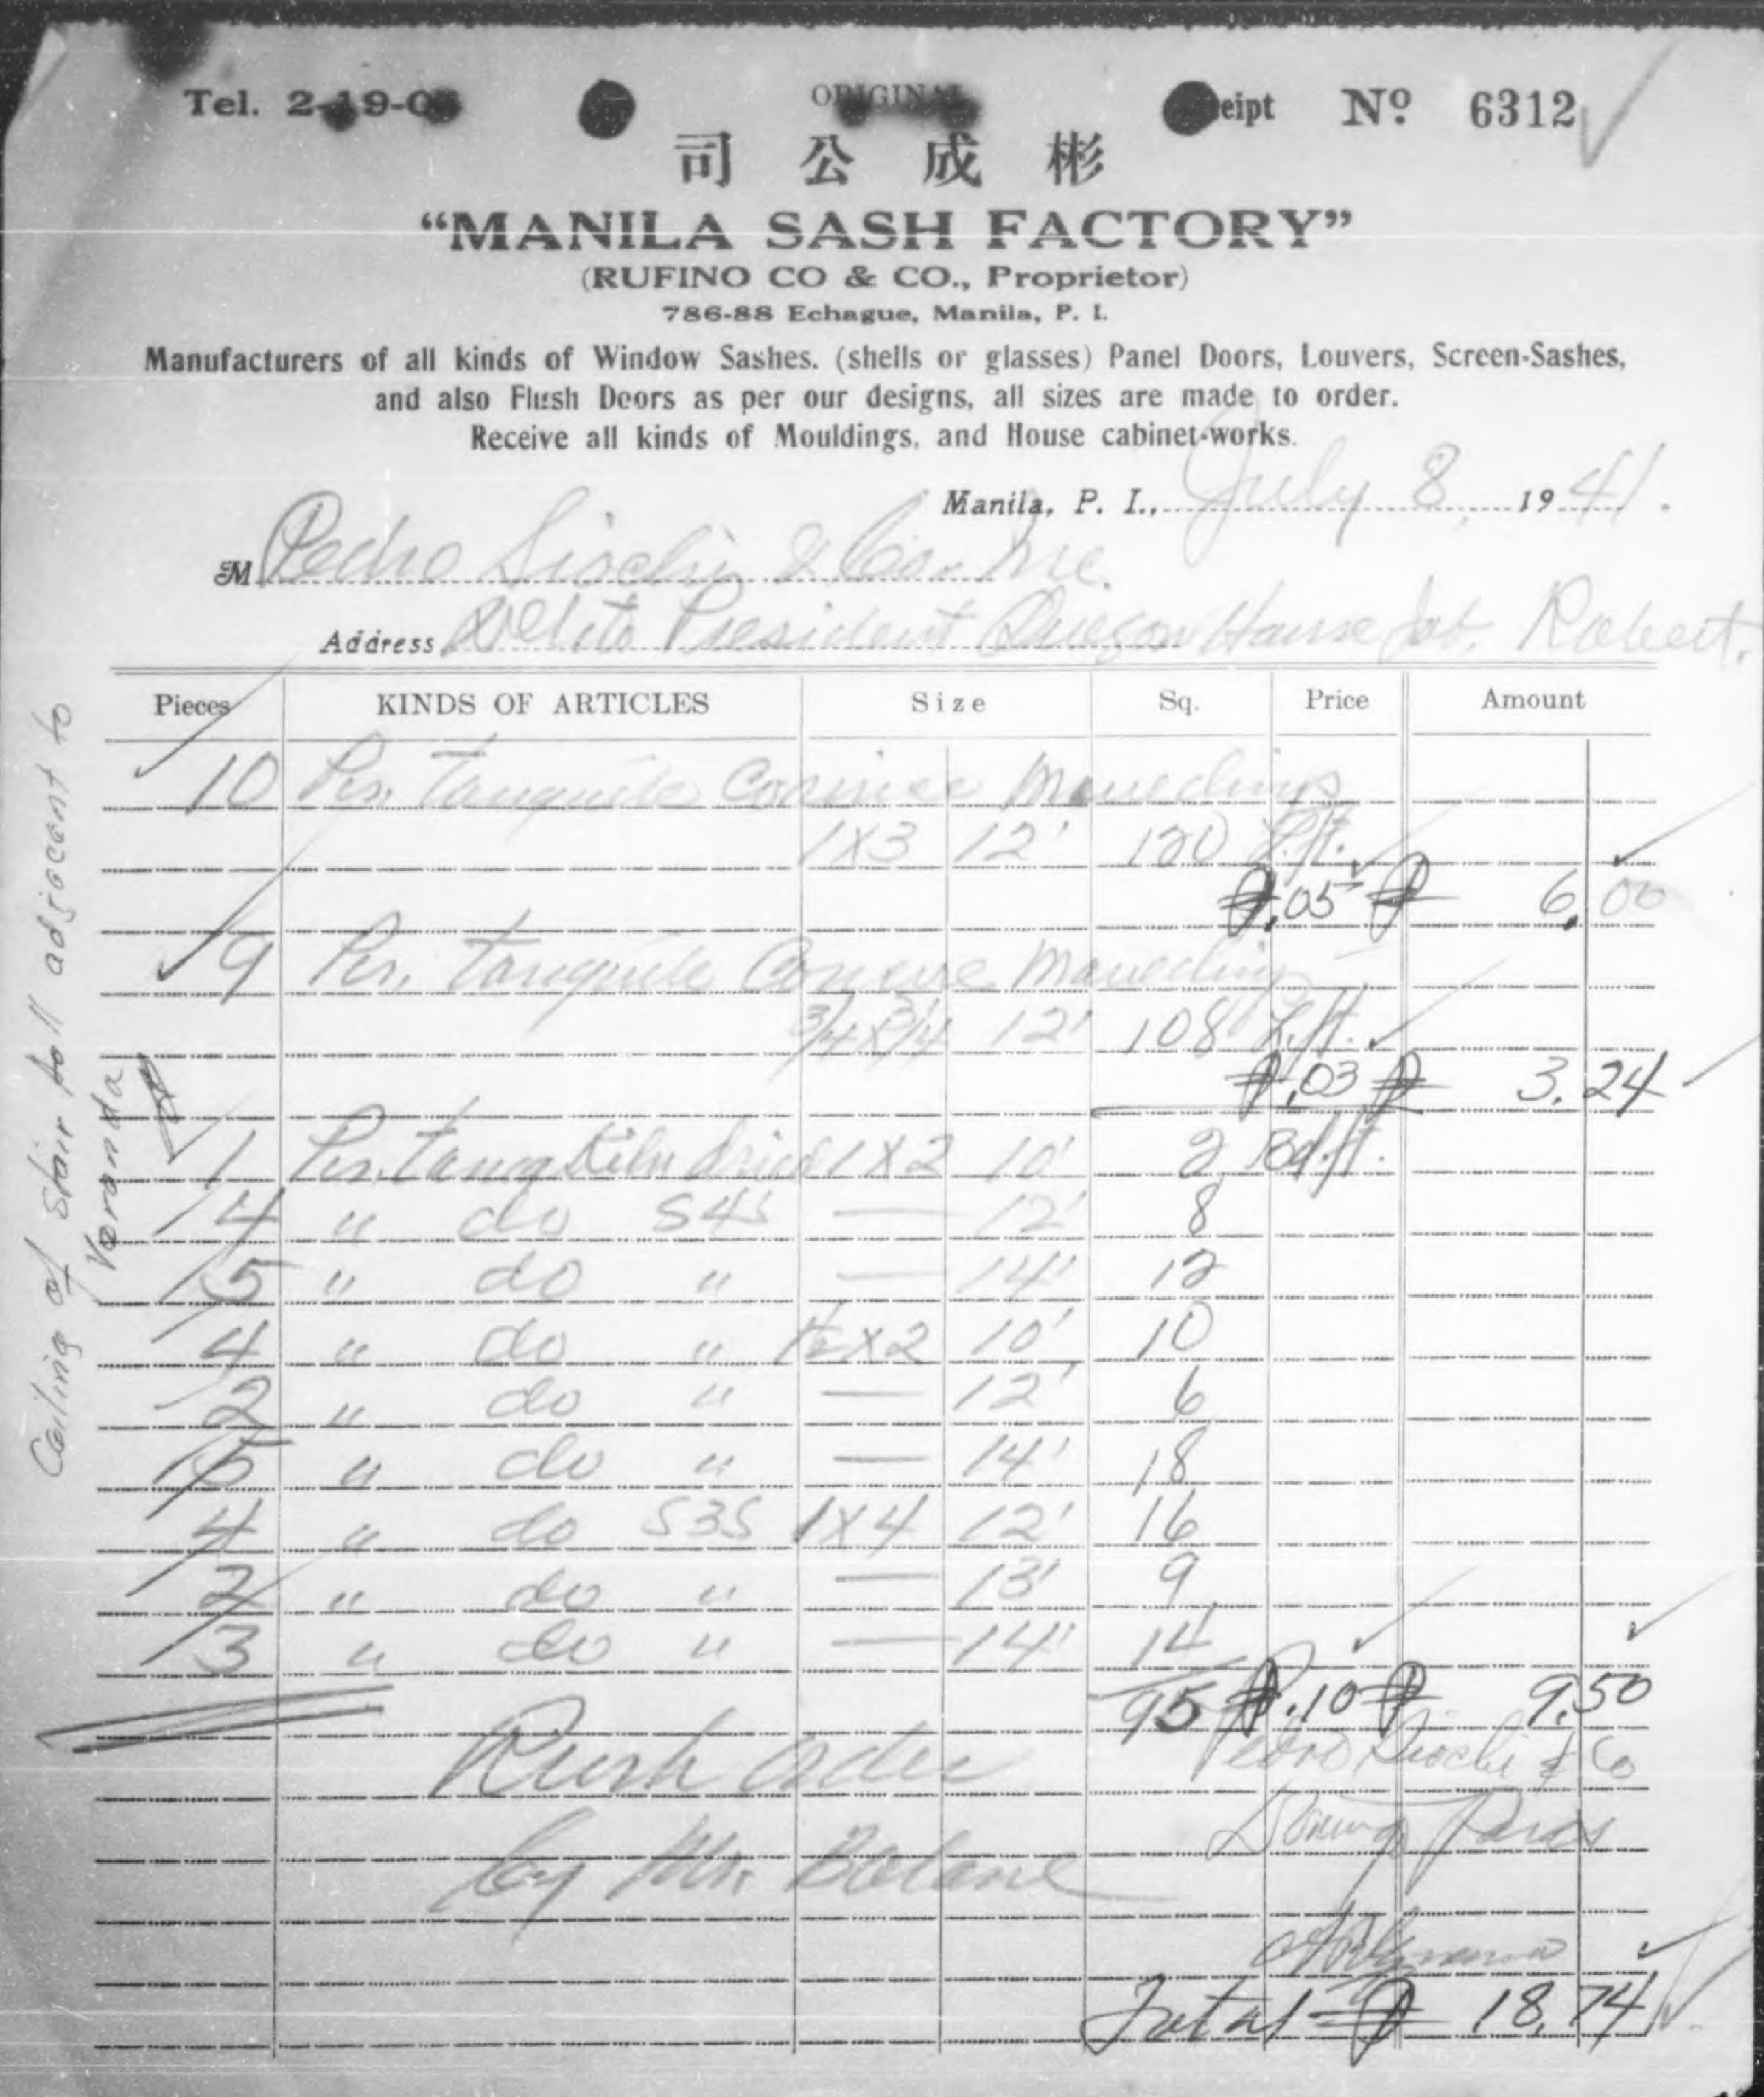 Tel. 2-19-0
ORIGINAL
eipt Nº 6312
司公成彬
“MANILA SASH FACTORY”
(RUFINO CO & CO., Proprietor)
786-88 Echague, Manila, P. I.
Manufacturers of all kinds of Window Sashes. (shells or glasses) Panel Doors, Louvers, Screen-Sashes,
and also Flush Doors as per our designs, all sizes are made to order.
Receive all kinds of Mouldings, and House cabinet-works.
Manila, P. I., July 8, 1941.
M Pedro Siochi & Co. Inc.
Address President Quezon House Job. Robert.
Pieces KINDS OF ARTICLES Size Sq. Price Amount
10 Pcs. Tanguile Mouldings
1x3 12' 120 L.ft.
₱.05 ₱ 6.00
9 Pcs. Tanguile Moulding
3/4x3/4 12' 108 L.ft.
₱.03 ₱ 3.24
1 Pcs. Tang Kiln dried 1x2 10' 2 Bd.ft.
4 " do S4S — 12' 8
5 " do " — 14' 12
4 " do " 1½x2 10' 10
2 " do " — 12' 6
5 " do " — 14' 18
4 " do S3S 1x4 12' 16
2 " do " — 13' 9
3 " do " — 14' 14
95 ₱.10 ₱ 9.50
Rush order
Pedro Siochi & Co
by Mr.
Total ₱ 18.74
Ceiling of Stair hall adjecent to
Veranda